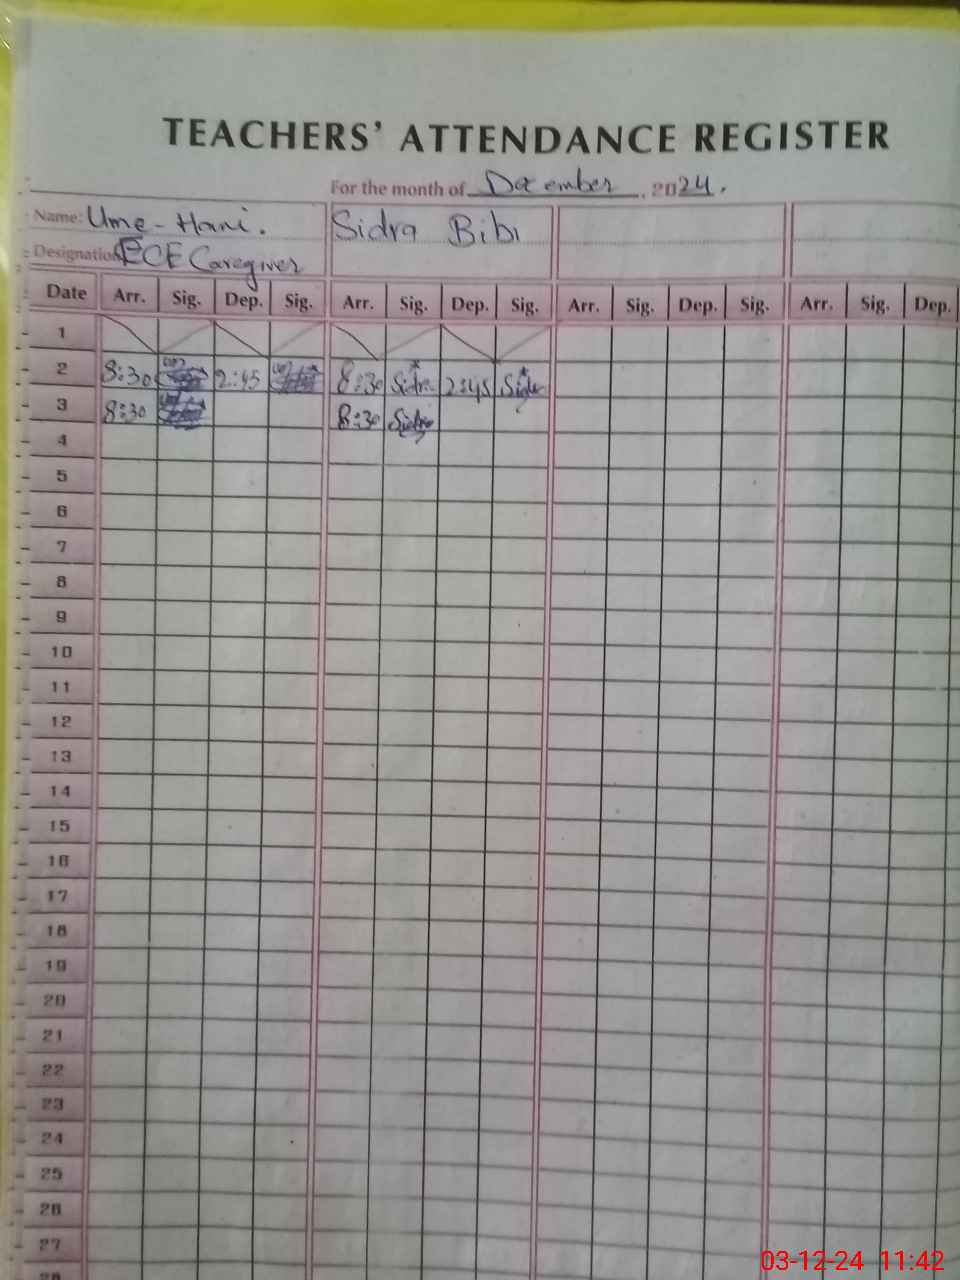 TEACHERS' ATTENDANCE REGISTER
For the month of December, 2024.
Name: Ume-Hani. Sidra Bibi
Designation ECE Caregiver
Date Arr. Sig. Dep. Sig. Arr. Sig. Dep. Sig. Arr. Sig. Dep. Sig. Arr. Sig. Dep.
1
2 8:30 2:45 8:30 Sidra 2:45 Sidra
3 8:30 8:30 Sidra
4
5
6
7
8
9
10
11
12
13
14
15
16
17
18
19
20
21
22
23
24
25
26
27
03-12-24 11:42